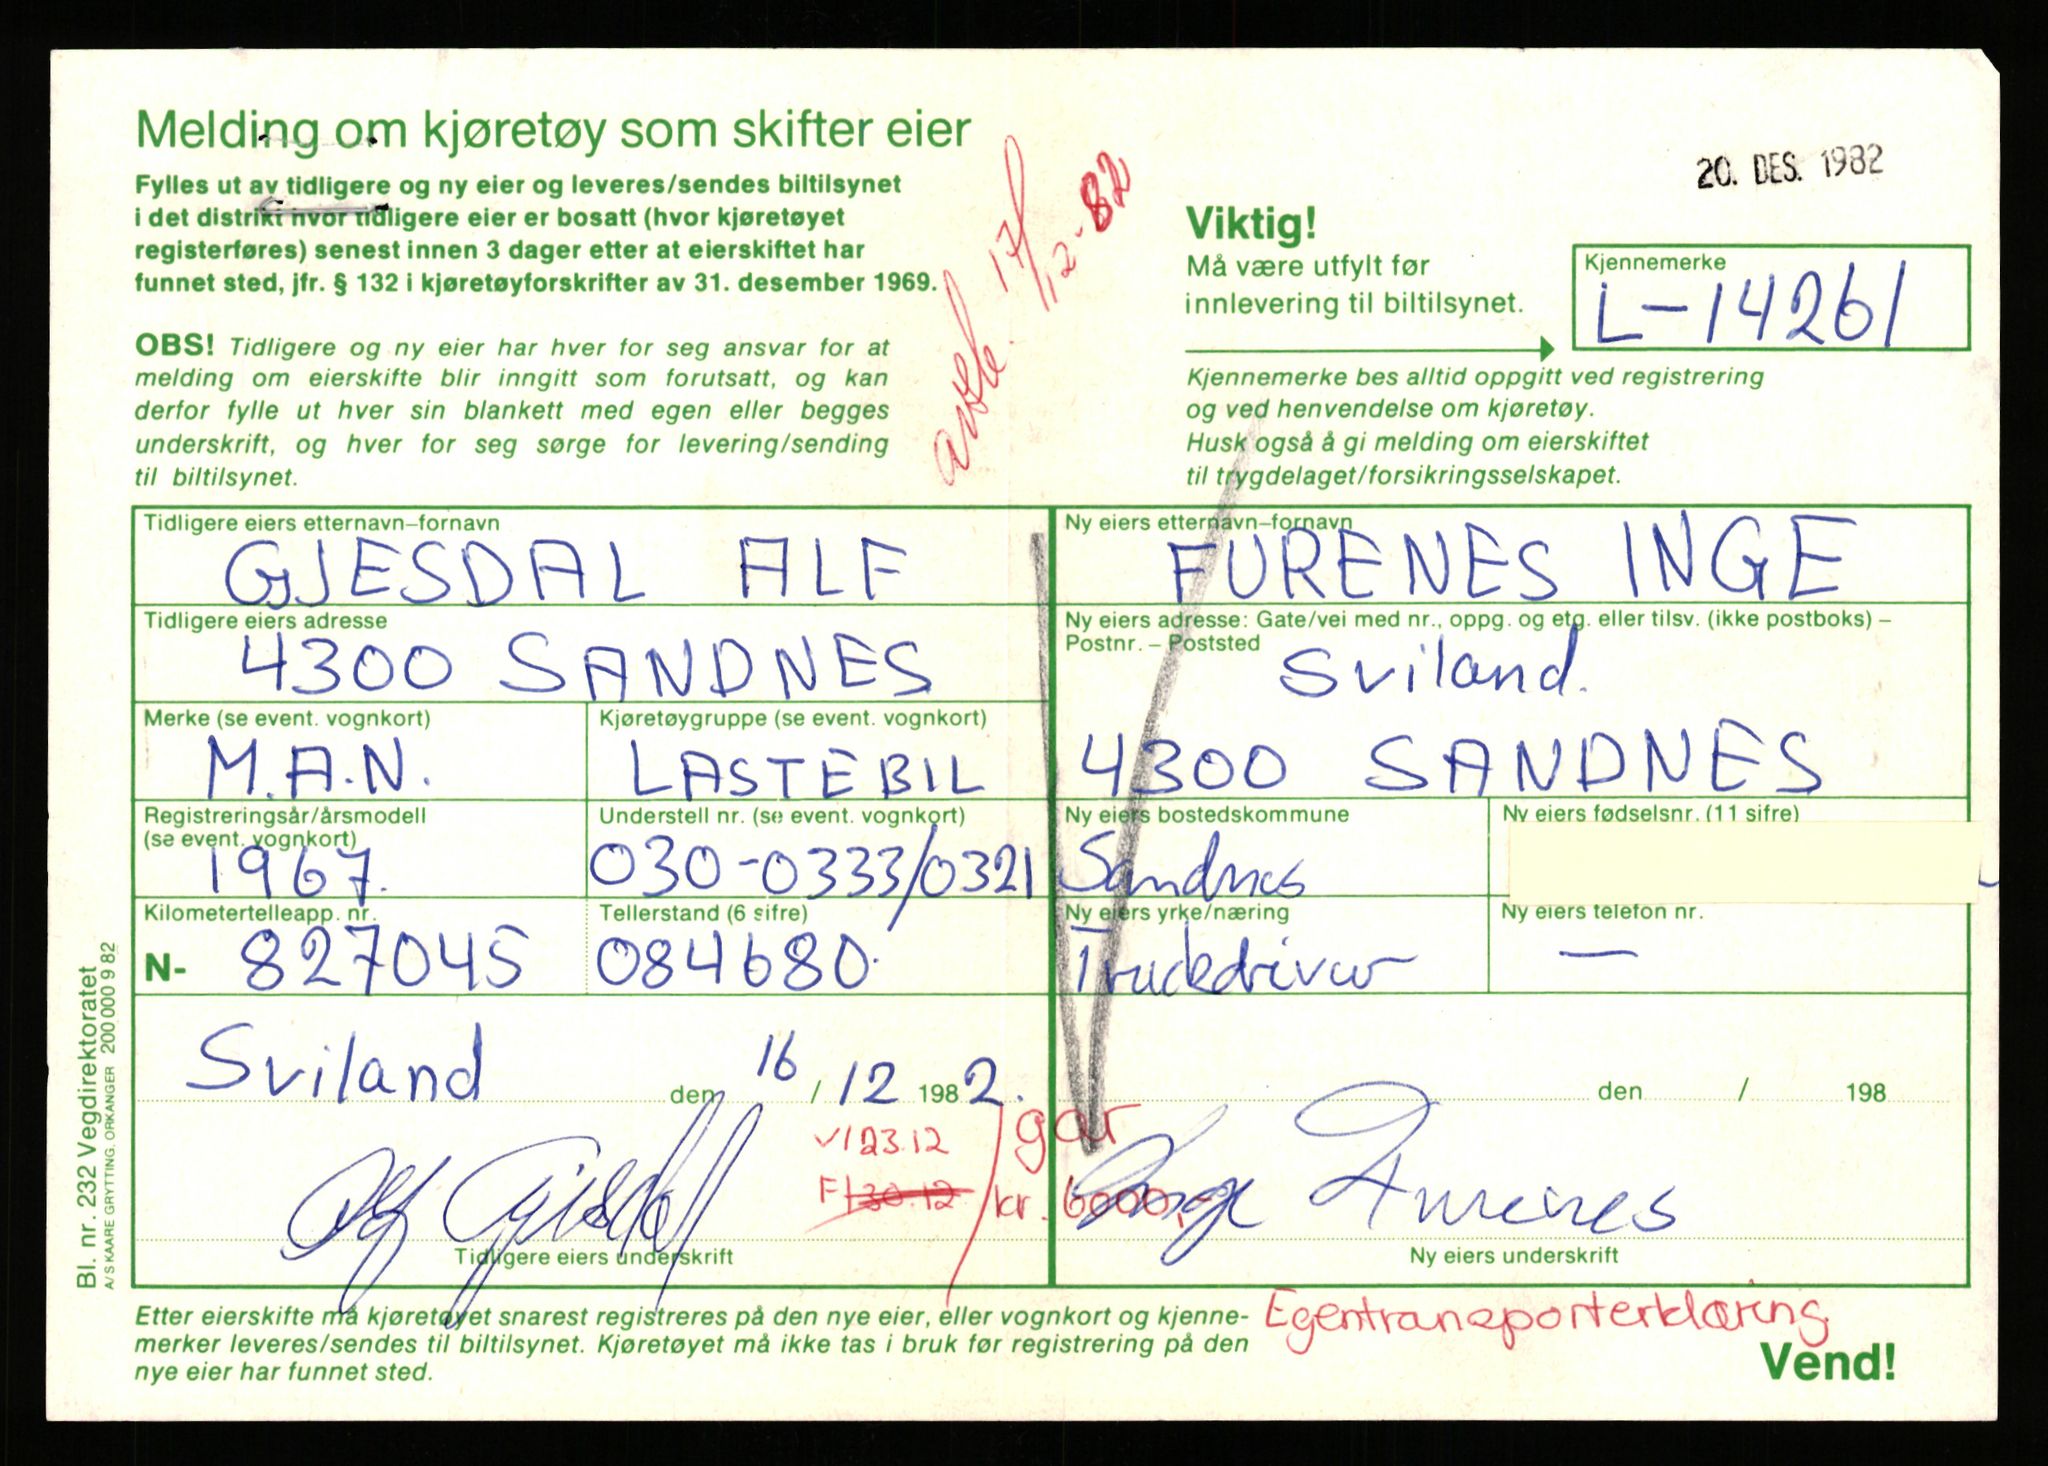 Melding om kjøretøy som skifter eier
Fylles ut av tidligere og ny eier og leveres/sendes biltilsynet
i det distrikt hvor tidligere eier er bosatt (hvor kjøretøyet
registerføres) senest innen 3 dager etter at eierskiftet har
funnet sted, jfr. § 132 i kjøretøyforskrifter av 31. desember 1969.
OBS! Tidligere og ny eier har hver for seg ansvar for at
melding om eierskifte blir inngitt som forutsatt, og kan
derfor fylle ut hver sin blankett med egen eller begges
underskrift, og hver for seg sørge for levering/sending
til biltilsynet.
17/12-82
20. DES. 1982
Viktig!
Må være utfylt før
innlevering til biltilsynet.
Kjennemerke
L-14261
Kjennemerke bes alltid oppgitt ved registrering
og ved henvendelse om kjøretøy.
Husk også å gi melding om eierskiftet
til trygdelaget/forsikringsselskapet.
Tidligere eiers etternavn–fornavn
GJESDAL ALF
Tidligere eiers adresse
4300 SANDNES
Merke (se event. vognkort)
M.A.N.
Kjøretøygruppe (se event. vognkort)
LASTEBIL
Registreringsår/årsmodell
(se event. vognkort)
1967.
Understell nr. (se event. vognkort)
030-0333/0321
Kilometertelleapp. nr.
N- 827045
Tellerstand (6 sifre)
084680.
Sviland den 16/12 1982.
V/23.12
F/30.12
Alf Gjesdal
Tidligere eiers underskrift
Ny eiers etternavn–fornavn
FURENES INGE
Ny eiers adresse: Gate/vei med nr., oppg. og etg. eller tilsv. (ikke postboks) –
Postnr. – Poststed
Sviland.
4300 SANDNES
Ny eiers bostedskommune
Sandnes
Ny eiers fødselsnr. (11 sifre)
Ny eiers yrke/næring
Truckdriver
Ny eiers telefon nr.
—
den / 198
gar
kr. 6000,-
Inge Furenes
Ny eiers underskrift
Etter eierskifte må kjøretøyet snarest registreres på den nye eier, eller vognkort og kjenne-
merker leveres/sendes til biltilsynet. Kjøretøyet må ikke tas i bruk før registrering på den
nye eier har funnet sted.
Egentransporterklæring
Vend!
Bl. nr. 232 Vegdirektoratet
A/S KAARE GRYTTING. ORKANGER 200 000 9 82